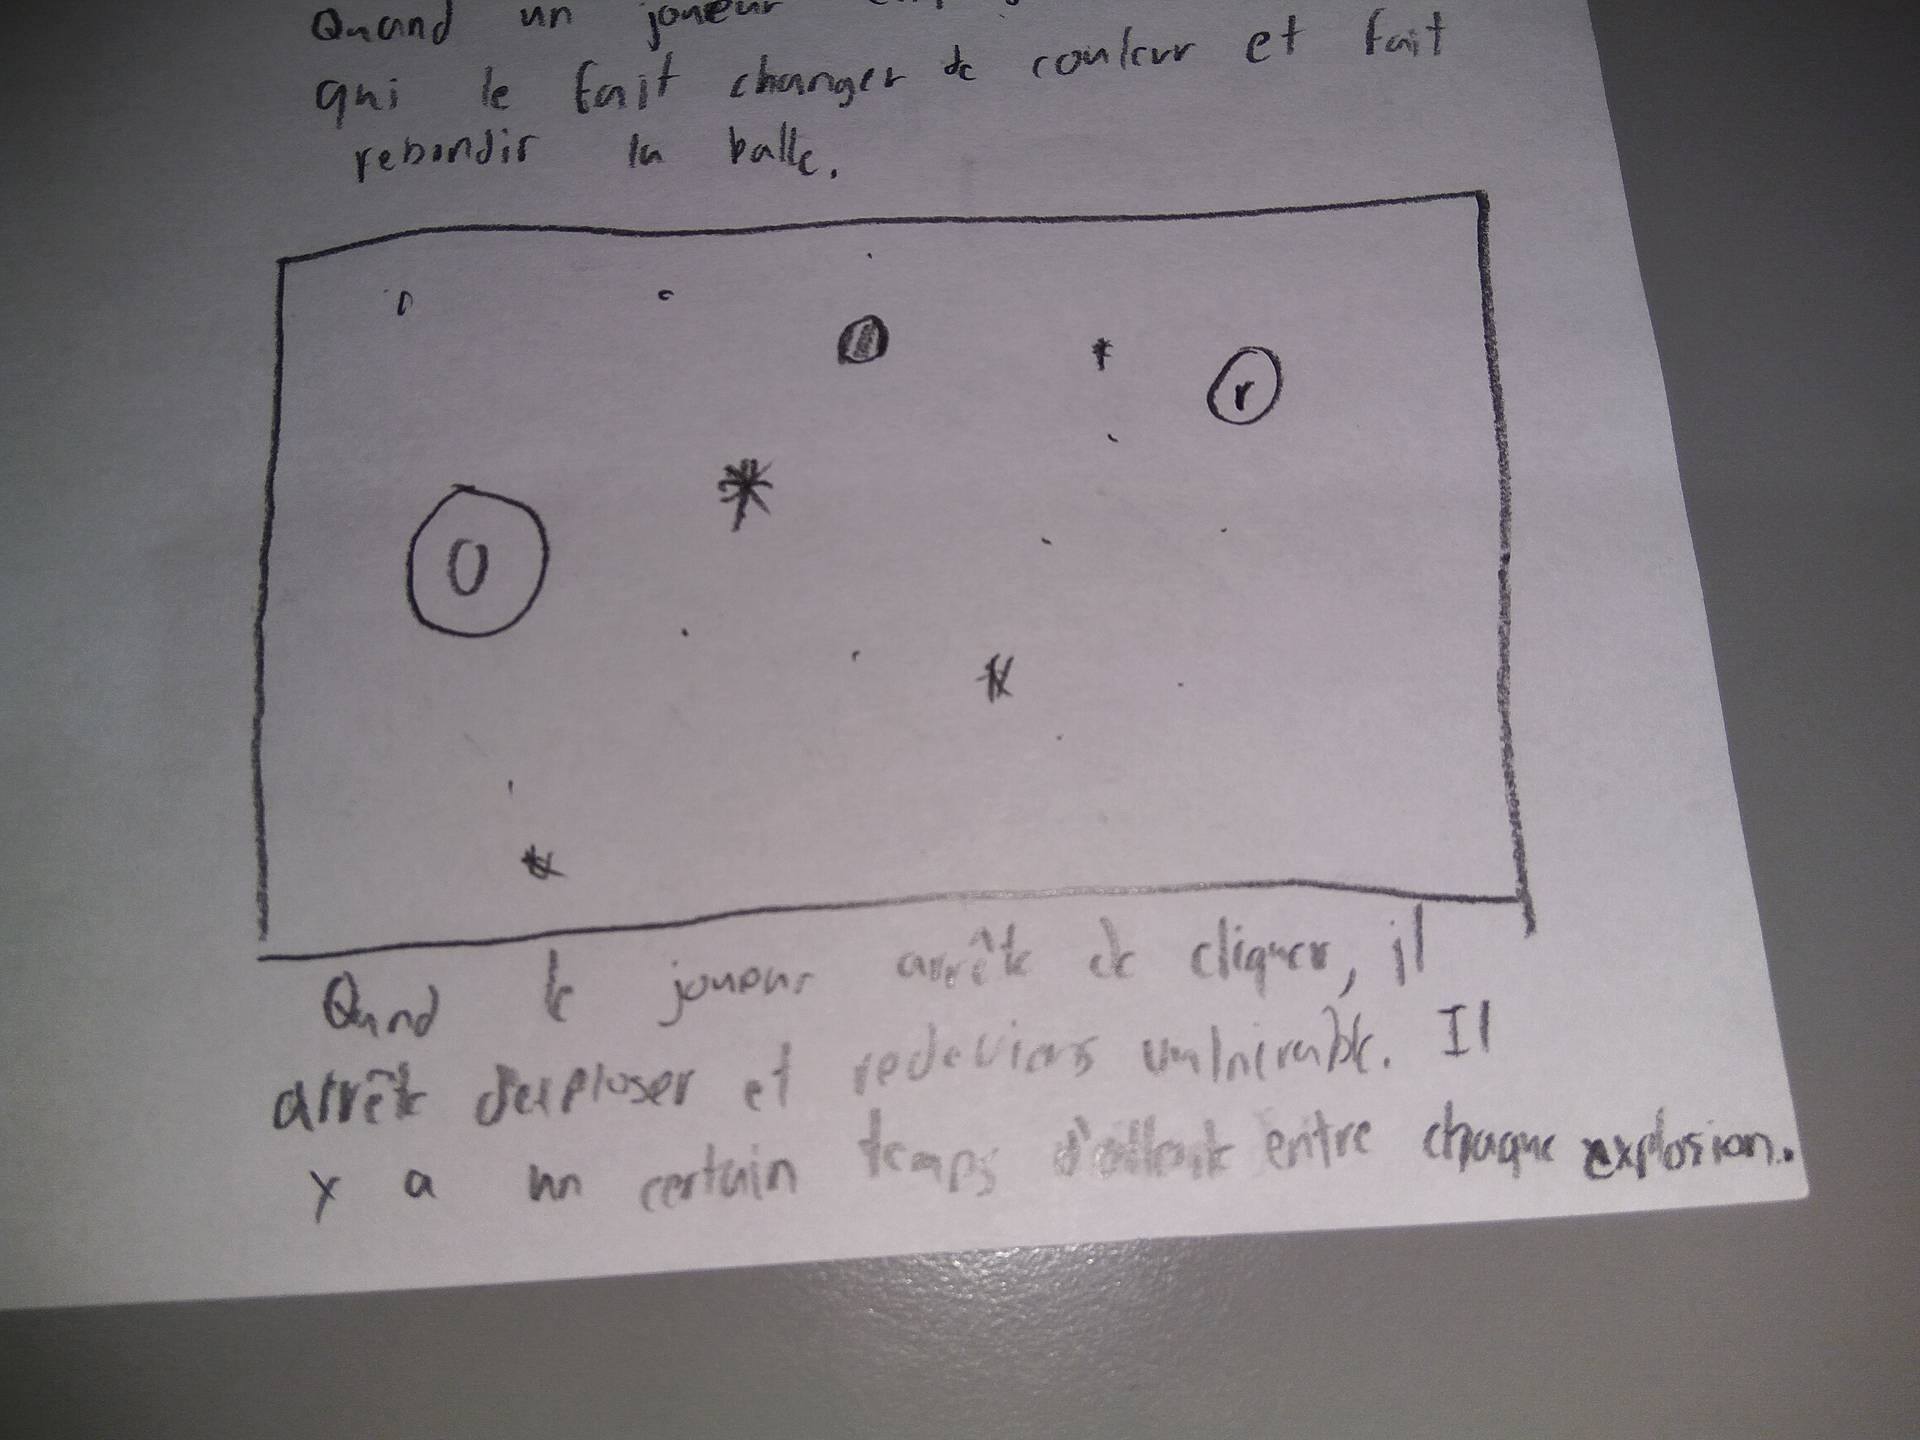 Quand un joueur
qui le fait changer de couleur et fait
rebondir la balle.
r
O
Quand le joueur arrête de cliquer, il
arrête d'exploser et redeviens vulnérable. Il
y a un certain temps d'attente entre chaque explosion.